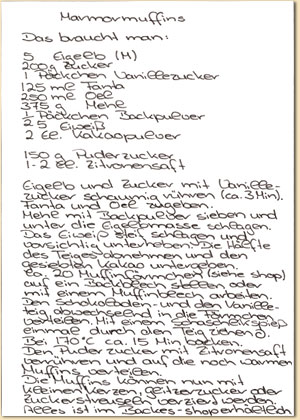 Marmormuffins
Das braucht man:
5 Eigelb (M)
200g Zucker
1 Päckchen Vanillezucker
125 ml Fanta
250 ml Oel
375 g Mehl
1 Päckchen Backpulver
5 Eiweiß
2 el. Kakaopulver
150 g Puderzucker
1-2 el. Zitronensaft
Eigelb und Zucker mit Vanille-
zucker schaumig rühren (ca. 3 Min).
Fanta und Oel zugeben.
Mehl mit Backpulver sieben und
unter die Eigelbmasse schlagen.
Das Eiweiß steif schlagen und
vorsichtig unterheben. Die Hälfte
des Teiges abnehmen und den
gesiebten Kakao untergeben.
Ca. 20 Muffinförmchen (siehe shop)
auf ein Backblech stellen oder
mit einem Muffinblech arbeiten.
Den Schokoladen- und den Vanille-
teig abwechselnd in die Förmchen
verteilen. Mit einem Schaschlikspieß
einmal durch den Teig ziehen.
Bei 170°C ca. 15 Min backen.
Den Puder zucker mit Zitronensaft
verrühren und auf die noch warmen
Muffins verteilen.
Die Muffins können nun mit
kleinen Kerzen, Glitzerzucker oder
Zuckerstreuseln verziert werden.
Alles ist im Backes shop erhältlich